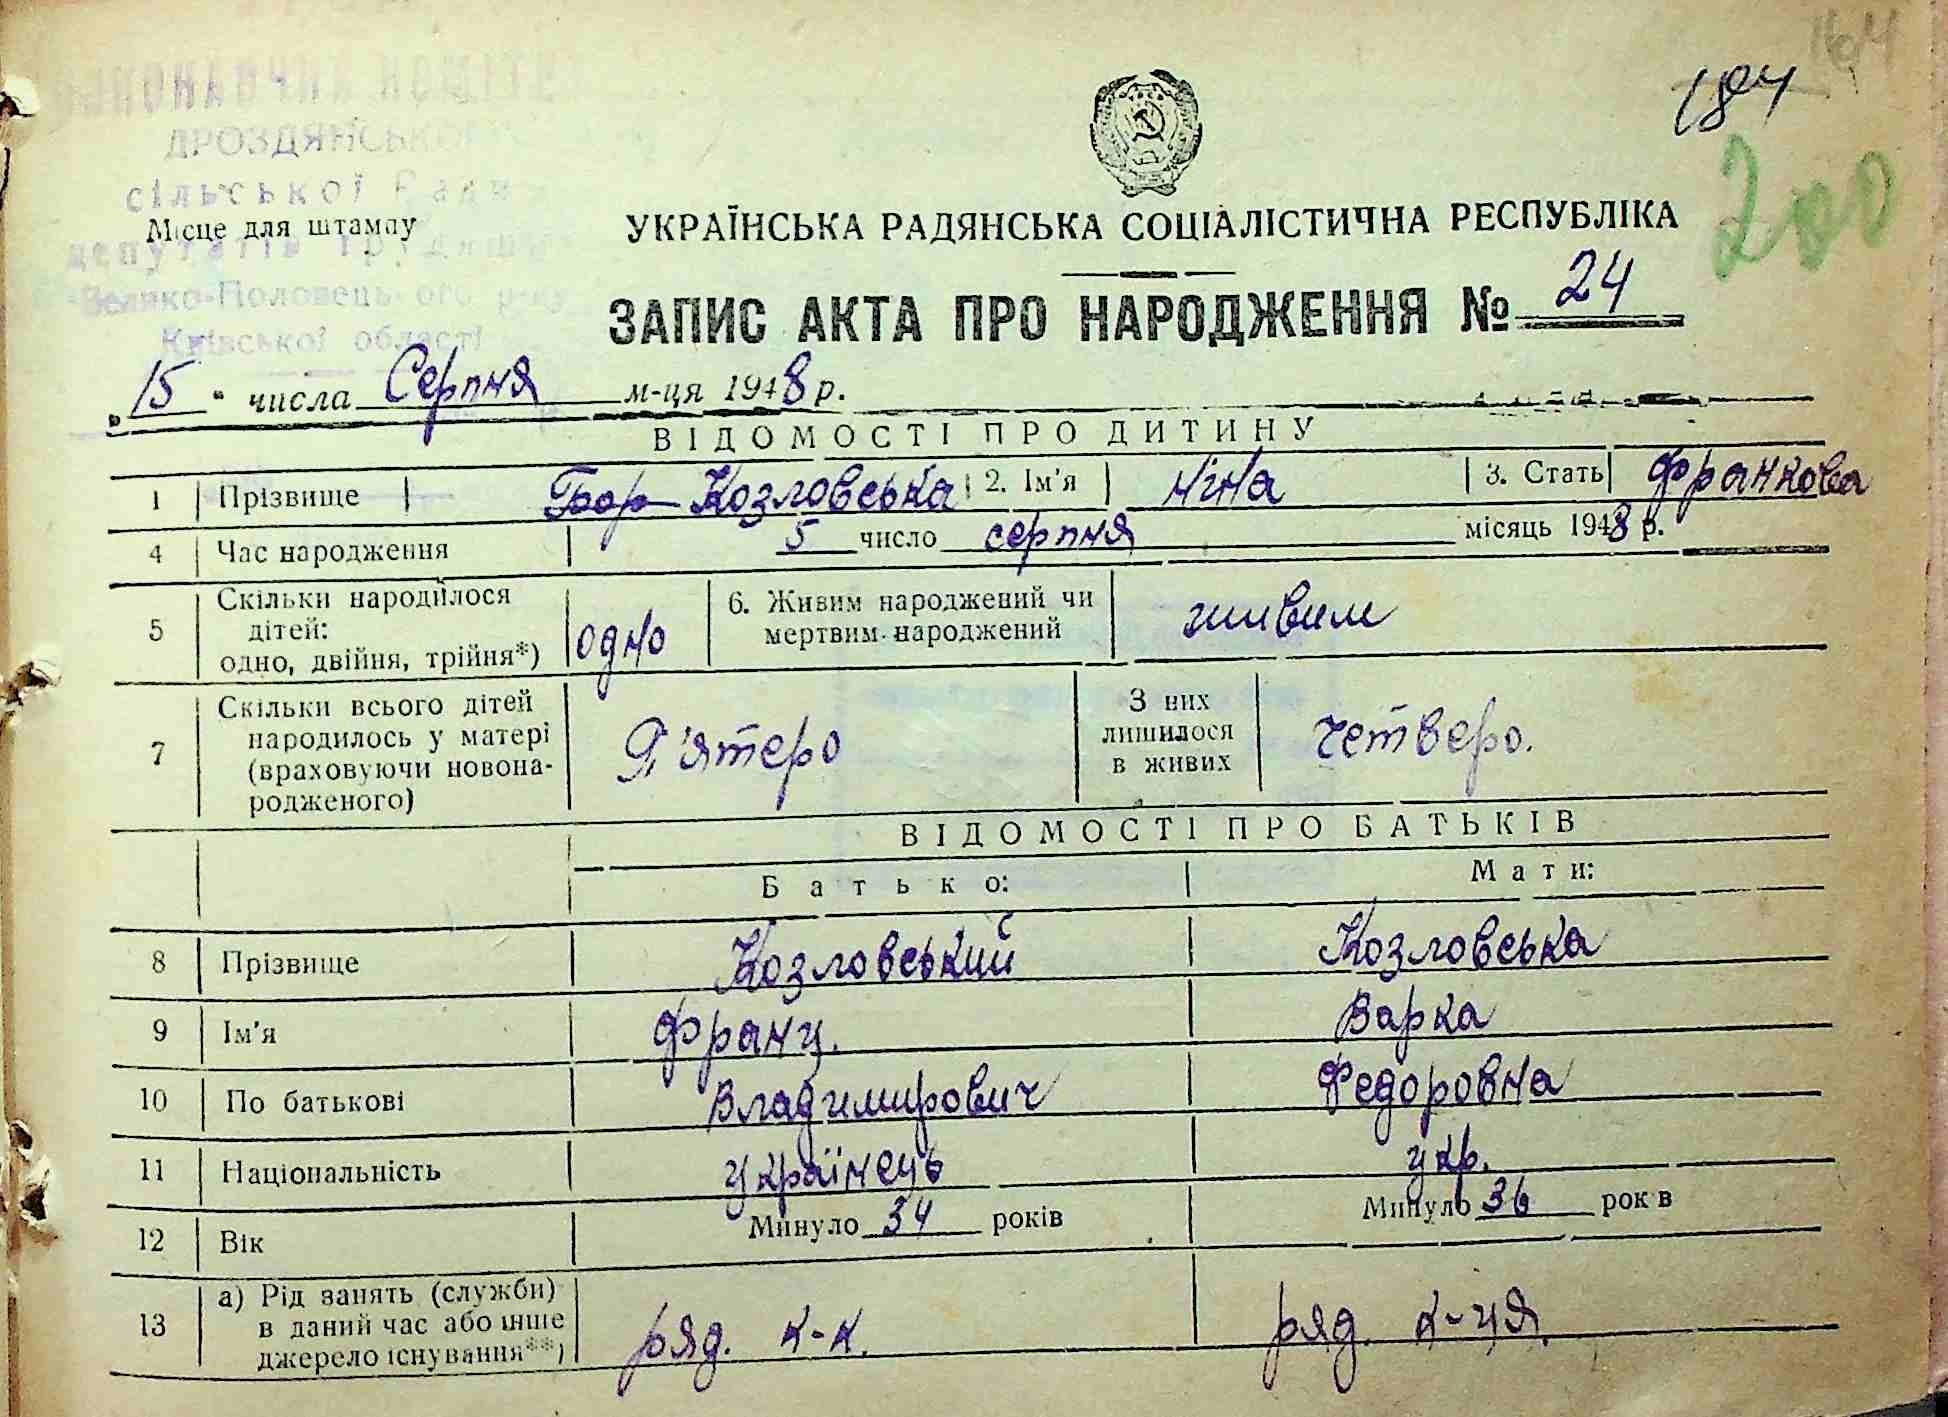 164
184
200
ДРОЗДЯНСЬКОГО
сільської Ради
Місце для штампу
депутатів трудящих
Велико-Половецького р-ну
Київської області
УКРАЇНСЬКА РАДЯНСЬКА СОЦІАЛІСТИЧНА РЕСПУБЛІКА
ЗАПИС АКТА ПРО НАРОДЖЕННЯ № 24
„15" числа Серпня м-ця 1948 р.
ВІДОМОСТІ ПРО ДИТИНУ
1 Прізвище Козловська 2. Ім'я Ніна 3. Стать Франкова
4 Час народження 5 число серпня місяць 1948 р.
5 Скільки народилося дітей: одно, двійня, трійня*) одно 6. Живим народжений чи мертвим народжений живим
7 Скільки всього дітей народилось у матері (враховуючи новонародженого) П'ятеро З них лишилося в живих четверо.
ВІДОМОСТІ ПРО БАТЬКІВ
Батько: Мати:
8 Прізвище Козловський Козловська
9 Ім'я Франц. Варка
10 По батькові Владимирович Федоровна
11 Національність українець укр.
12 Вік Минуло 34 років Минуло 36 рок в
13 а) Рід занять (служби) в даний час або інше джерело існування**) ряд. к-к. ряд. к-ця.